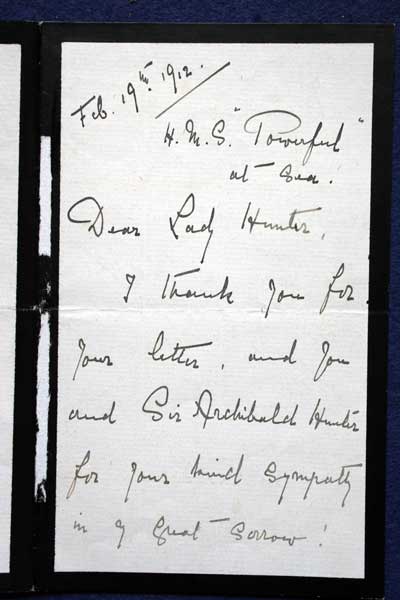 Feb. 19th. 1912.
H.M.S. "Powerful"
at Sea.
Dear Lady Hunter,
I thank you for
your letter, and you
and Sir Archibald Hunter
for your kind sympathy
in my great sorrow!